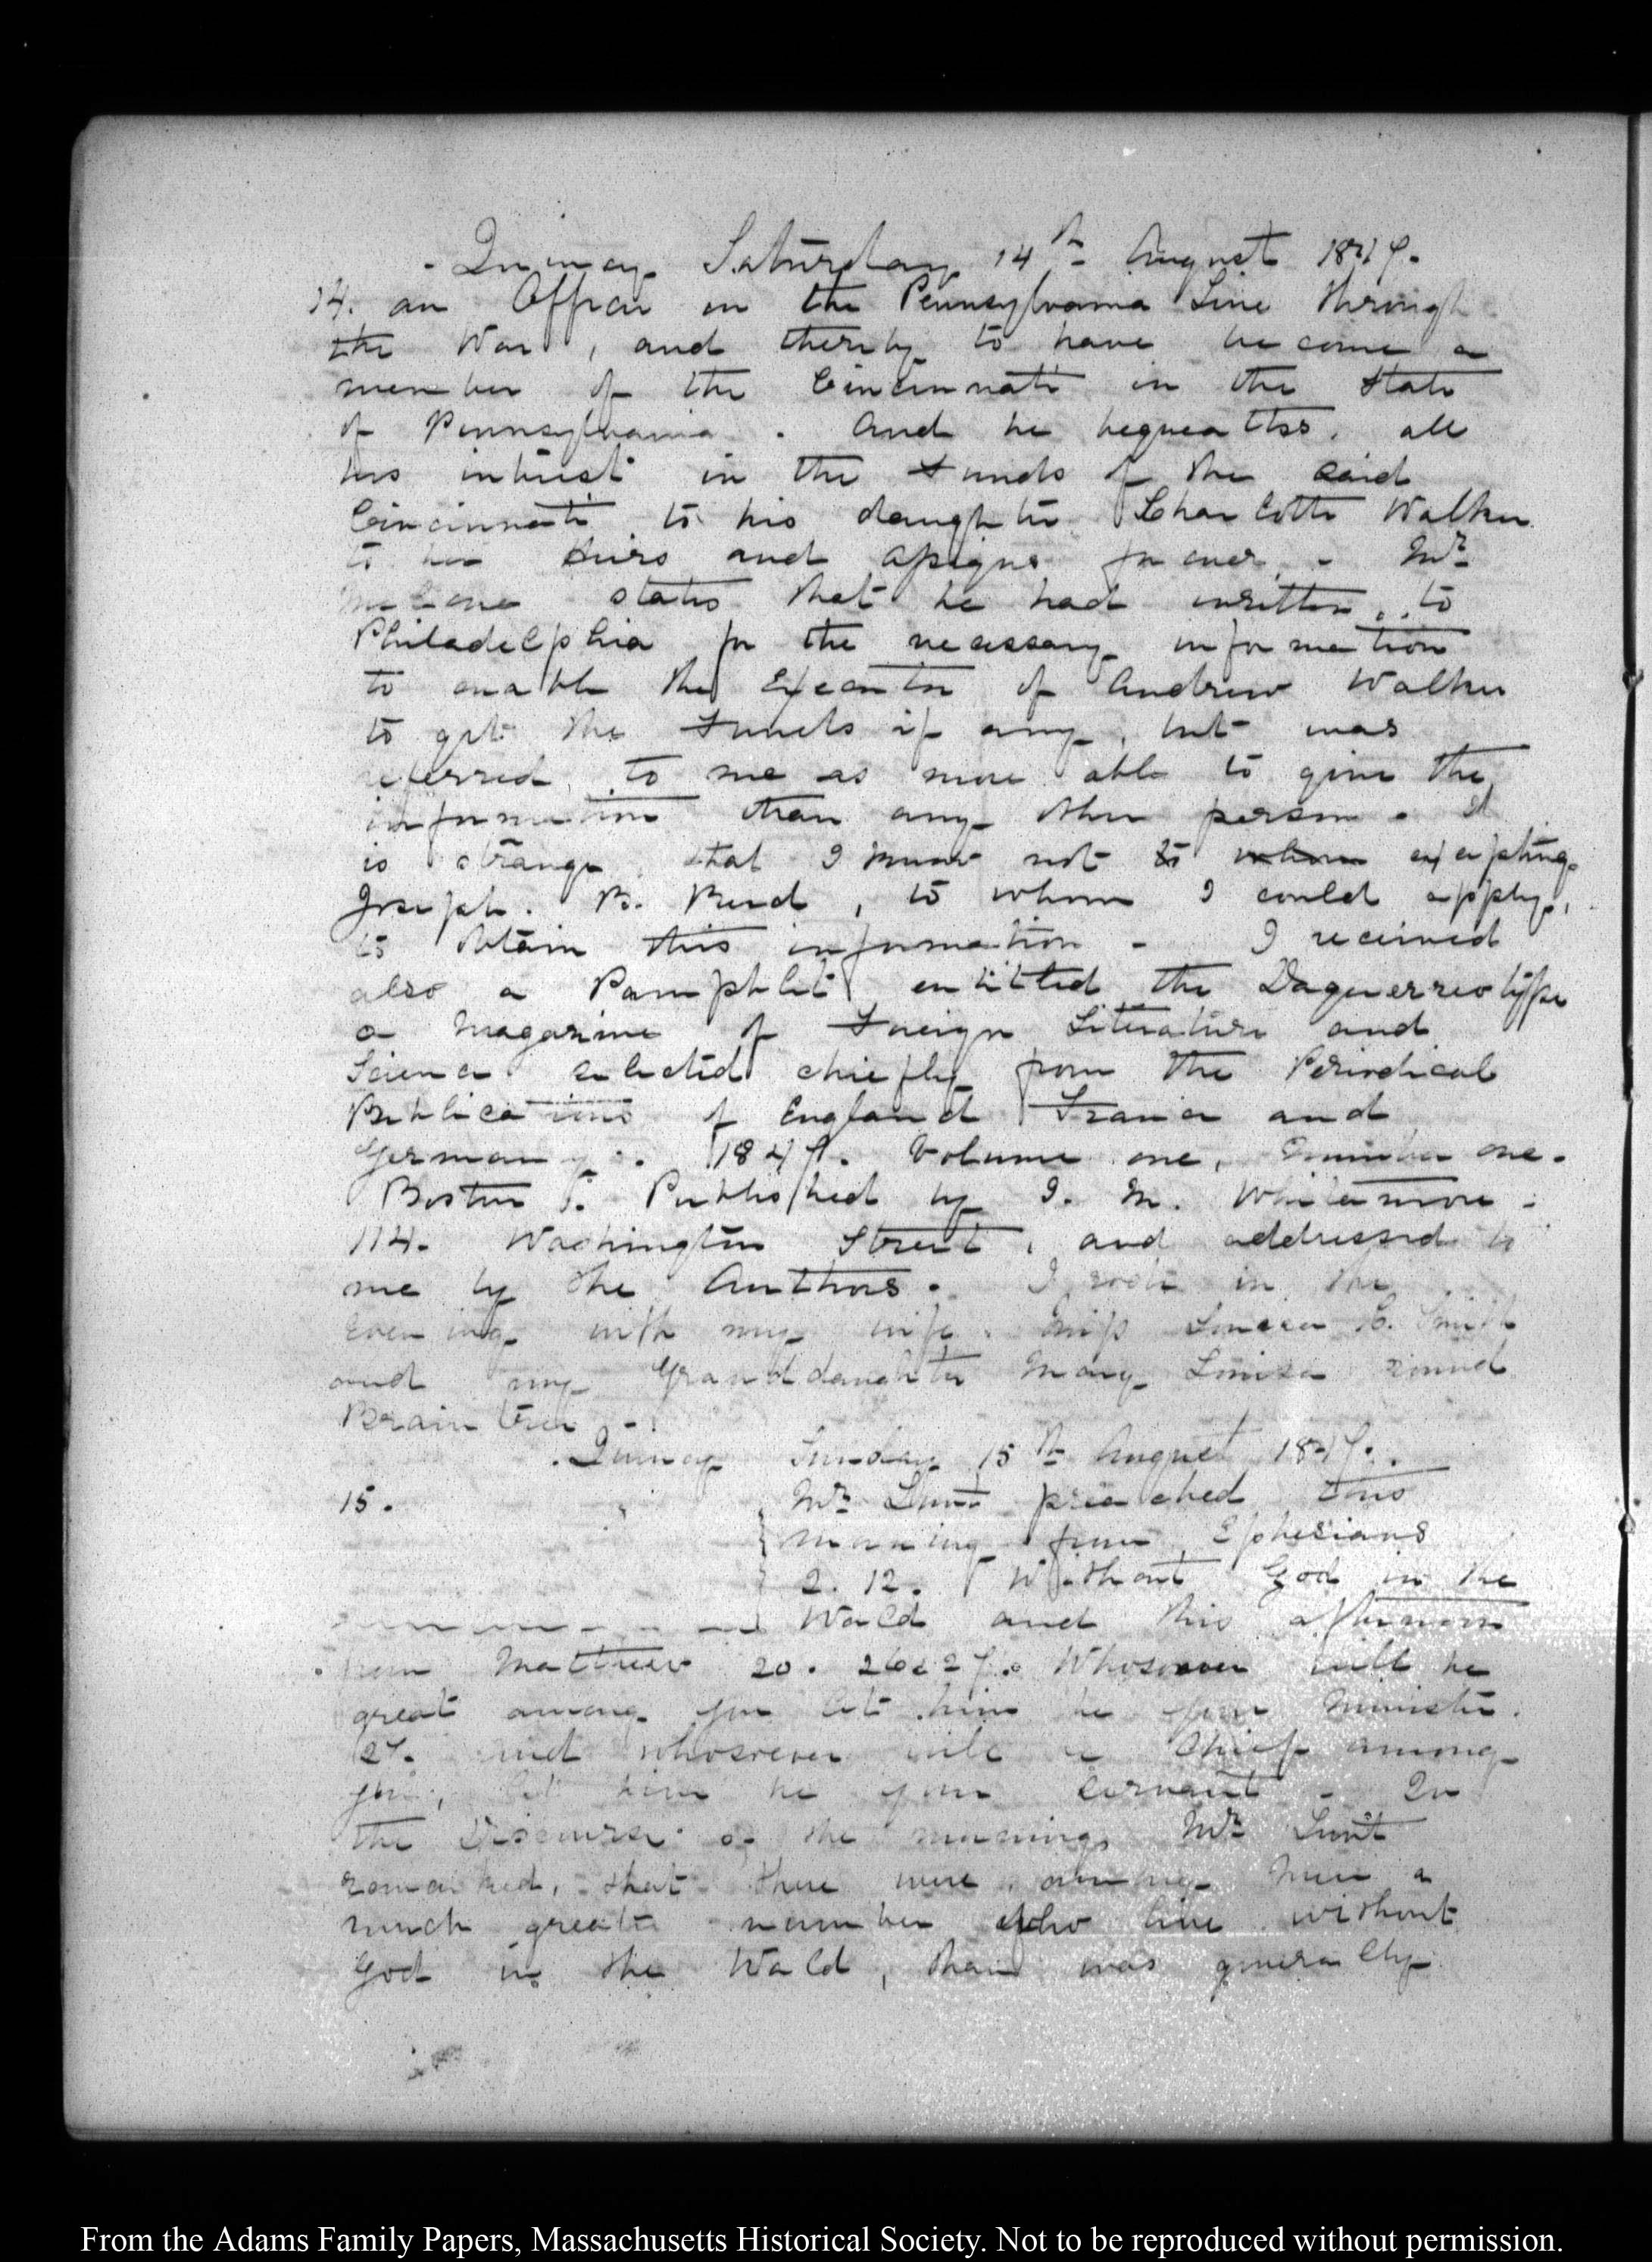 Quincy Saturday 14th August 1847.
14. an Officer in the Pennsylvania Line through
the War, and thereby to have become a
member of the Cincinnati in the State
of Pennsylvania. And he bequeaths, all
his interest in the Funds of the said
Cincinnati to his daughter Charlotte Walker
to her Heirs and Assigns for ever. - Mr
states that he had written to
Philadelphia for the necessary information
to enable the Executor of Andrew Walker
to get the Funds if any, but was
referred to me as more able to give the
information than any other person. It
is strange that I know not to whom excepting
Joseph. B. , to whom I could apply,
to obtain this information - I received
also a Pamphlet entitled the Daguerreotype
a Magazine of Foreign Literature and
Science selected chiefly from the Periodical
Publications of England France and
Germany. 1847. Volume one, Number one.
Boston. Published by J. M. Whittemore.
114. Washington Street, and addressed to
me by the Authors. I rode in the
Evening with my wife. Miss Louisa C. Smith
and my Granddaughter Mary Louisa round
Braintree -.
Quincy Sunday 15th August 1847.
15. Mr Lunt preached this
morning from Ephesians
2. 12. Without God in the
World and this afternoon
from Matthew 20. 26 & 27. Whosoever will be
great among you let him be your minister.
27. and whosoever will be Chief among
you, let him be your servant - In
the Discourse of the morning, Mr Lunt
remarked, that there were among men a
much greater number who live without
God in the World, than was generally
From the Adams Family Papers, Massachusetts Historical Society. Not to be reproduced without permission.